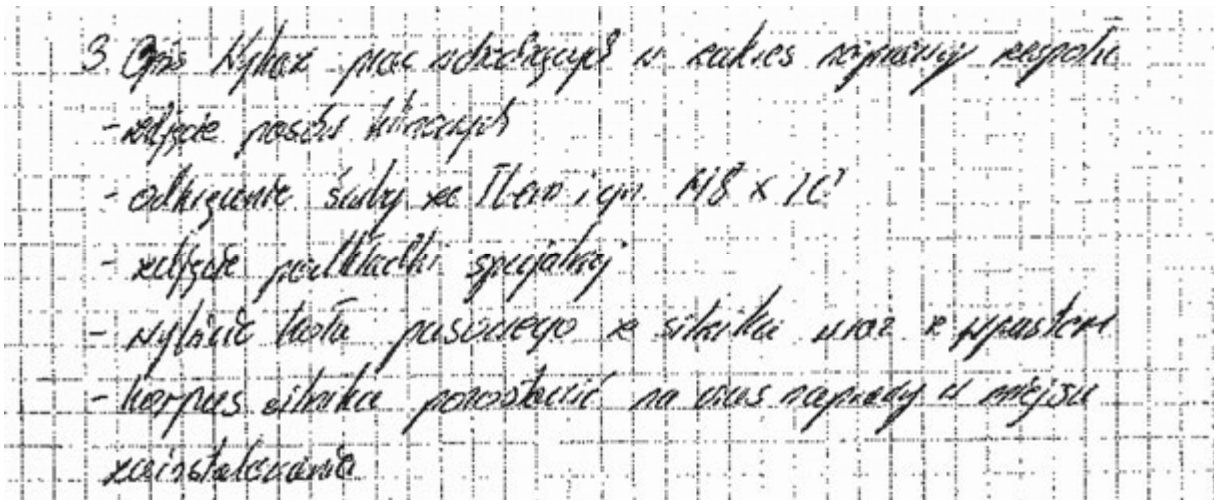 3. Opis Wykaz prac wchodzących w zakres naprawy zespołu
- zdjęcie pasów klinowych
- odkręcenie śruby ze łbem i gn. M8 x 20
- zdjęcie podkładki specjalnej
- wybicie koła pasowego z silnika wraz z wpustem
- korpus silnika pozostawić na czas naprawy w miejscu
zainstalowania